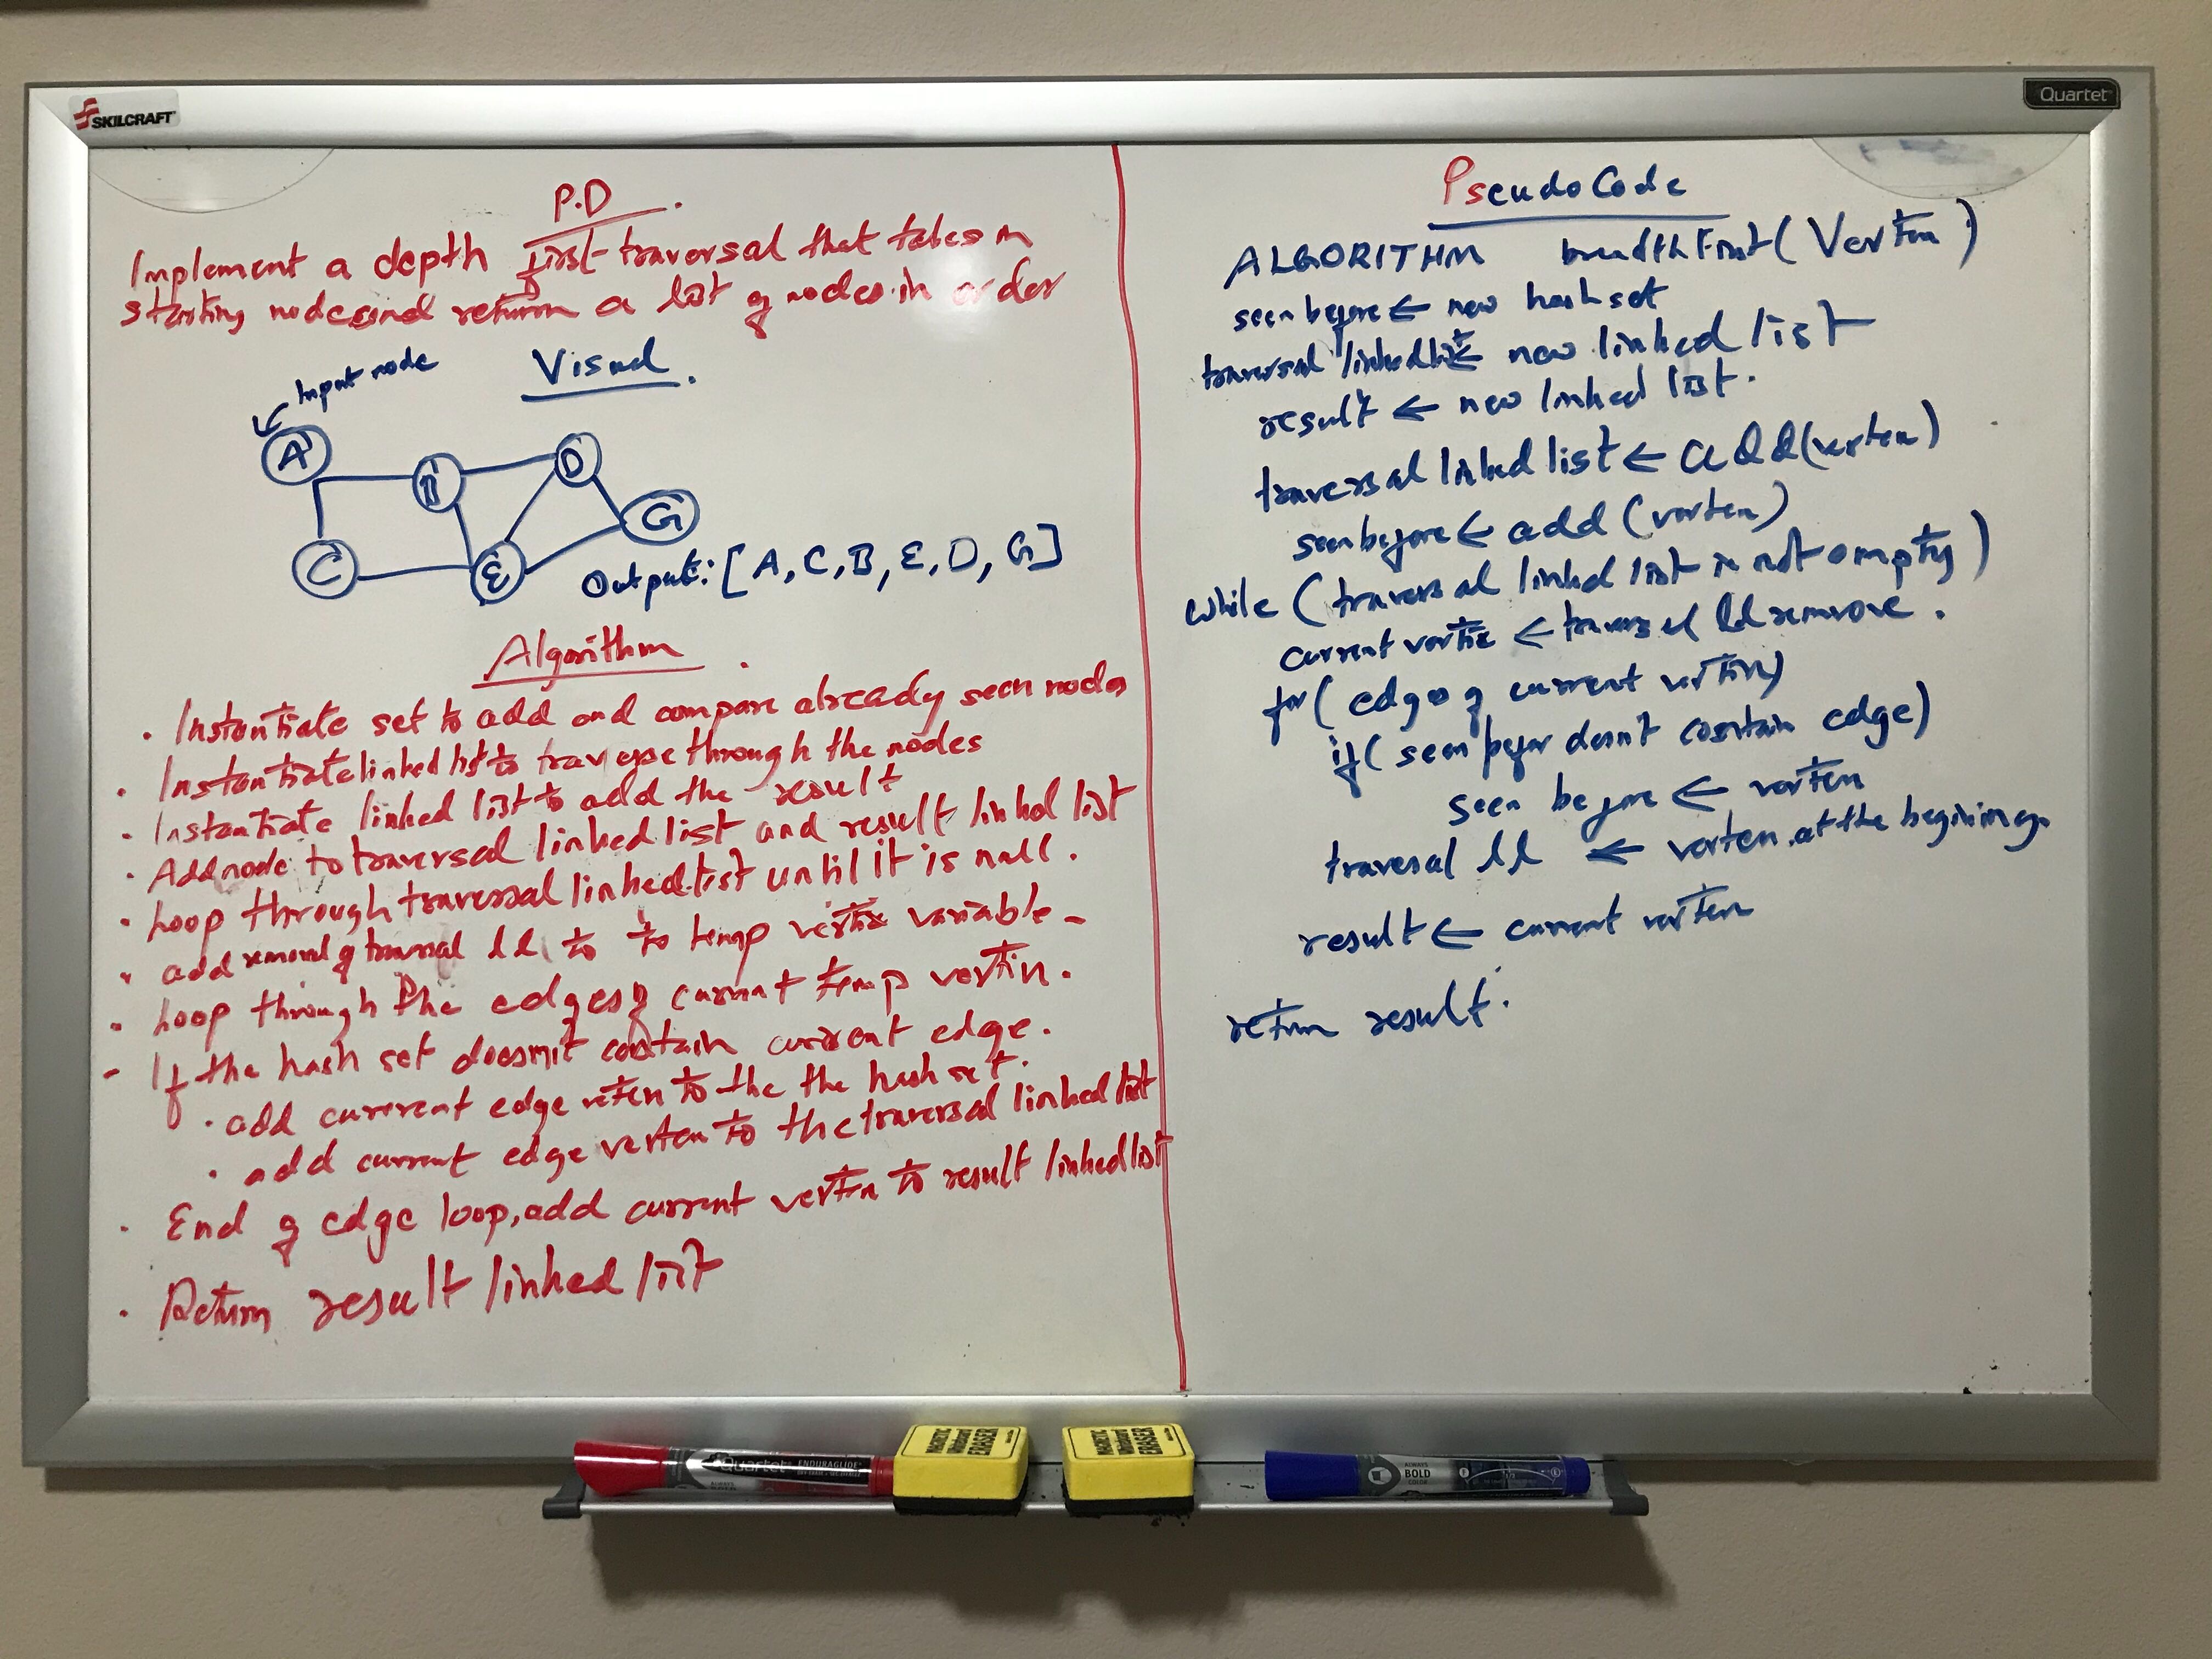 SKILCRAFT
Quartet
P.D
Implement a depth first traversal that takes in
starting node and return a list of nodes in order
Visual
Input node
A
D
G
C
E
Output: [A, C, B, E, D, G]
Algorithm
. Instantiate set to add and compare already seen nodes
. Instantiate linked list to traverse through the nodes
. Instantiate linked list to add the result
. Add node to traversal linked list and result linked list
. Loop through traversal linked list until it is null.
. add removal of traversal ll to to temp vertix variable -
. Loop through the edges of current temp vertix.
- If the hash set doesn't contain current edge.
. add current edge vertex to the the hash set.
. add current edge vertex to the traversal linked list
. End of edge loop, add current vertex to result linked list
. Return result linked list
PseudoCode
ALGORITHM breadthFirst(Vertex)
seen before ← new hash set
traversal linked list ← new linked list
result ← new linked list.
traversal linked list ← add(vertex)
seen before ← add (vertex)
while (traversal linked list is not empty)
current vertix ← traversal ll remove.
for( edge of current vertix)
if( seen before doesn't contain edge)
seen before ← vertex
traversal ll ← vertex at the beginning
result ← current vertex
return result.
Quartet ENDURAGLIDE
MAGNETIC Whiteboard ERASER
MAGNETIC Whiteboard ERASER
ALWAYS BOLD COLOR